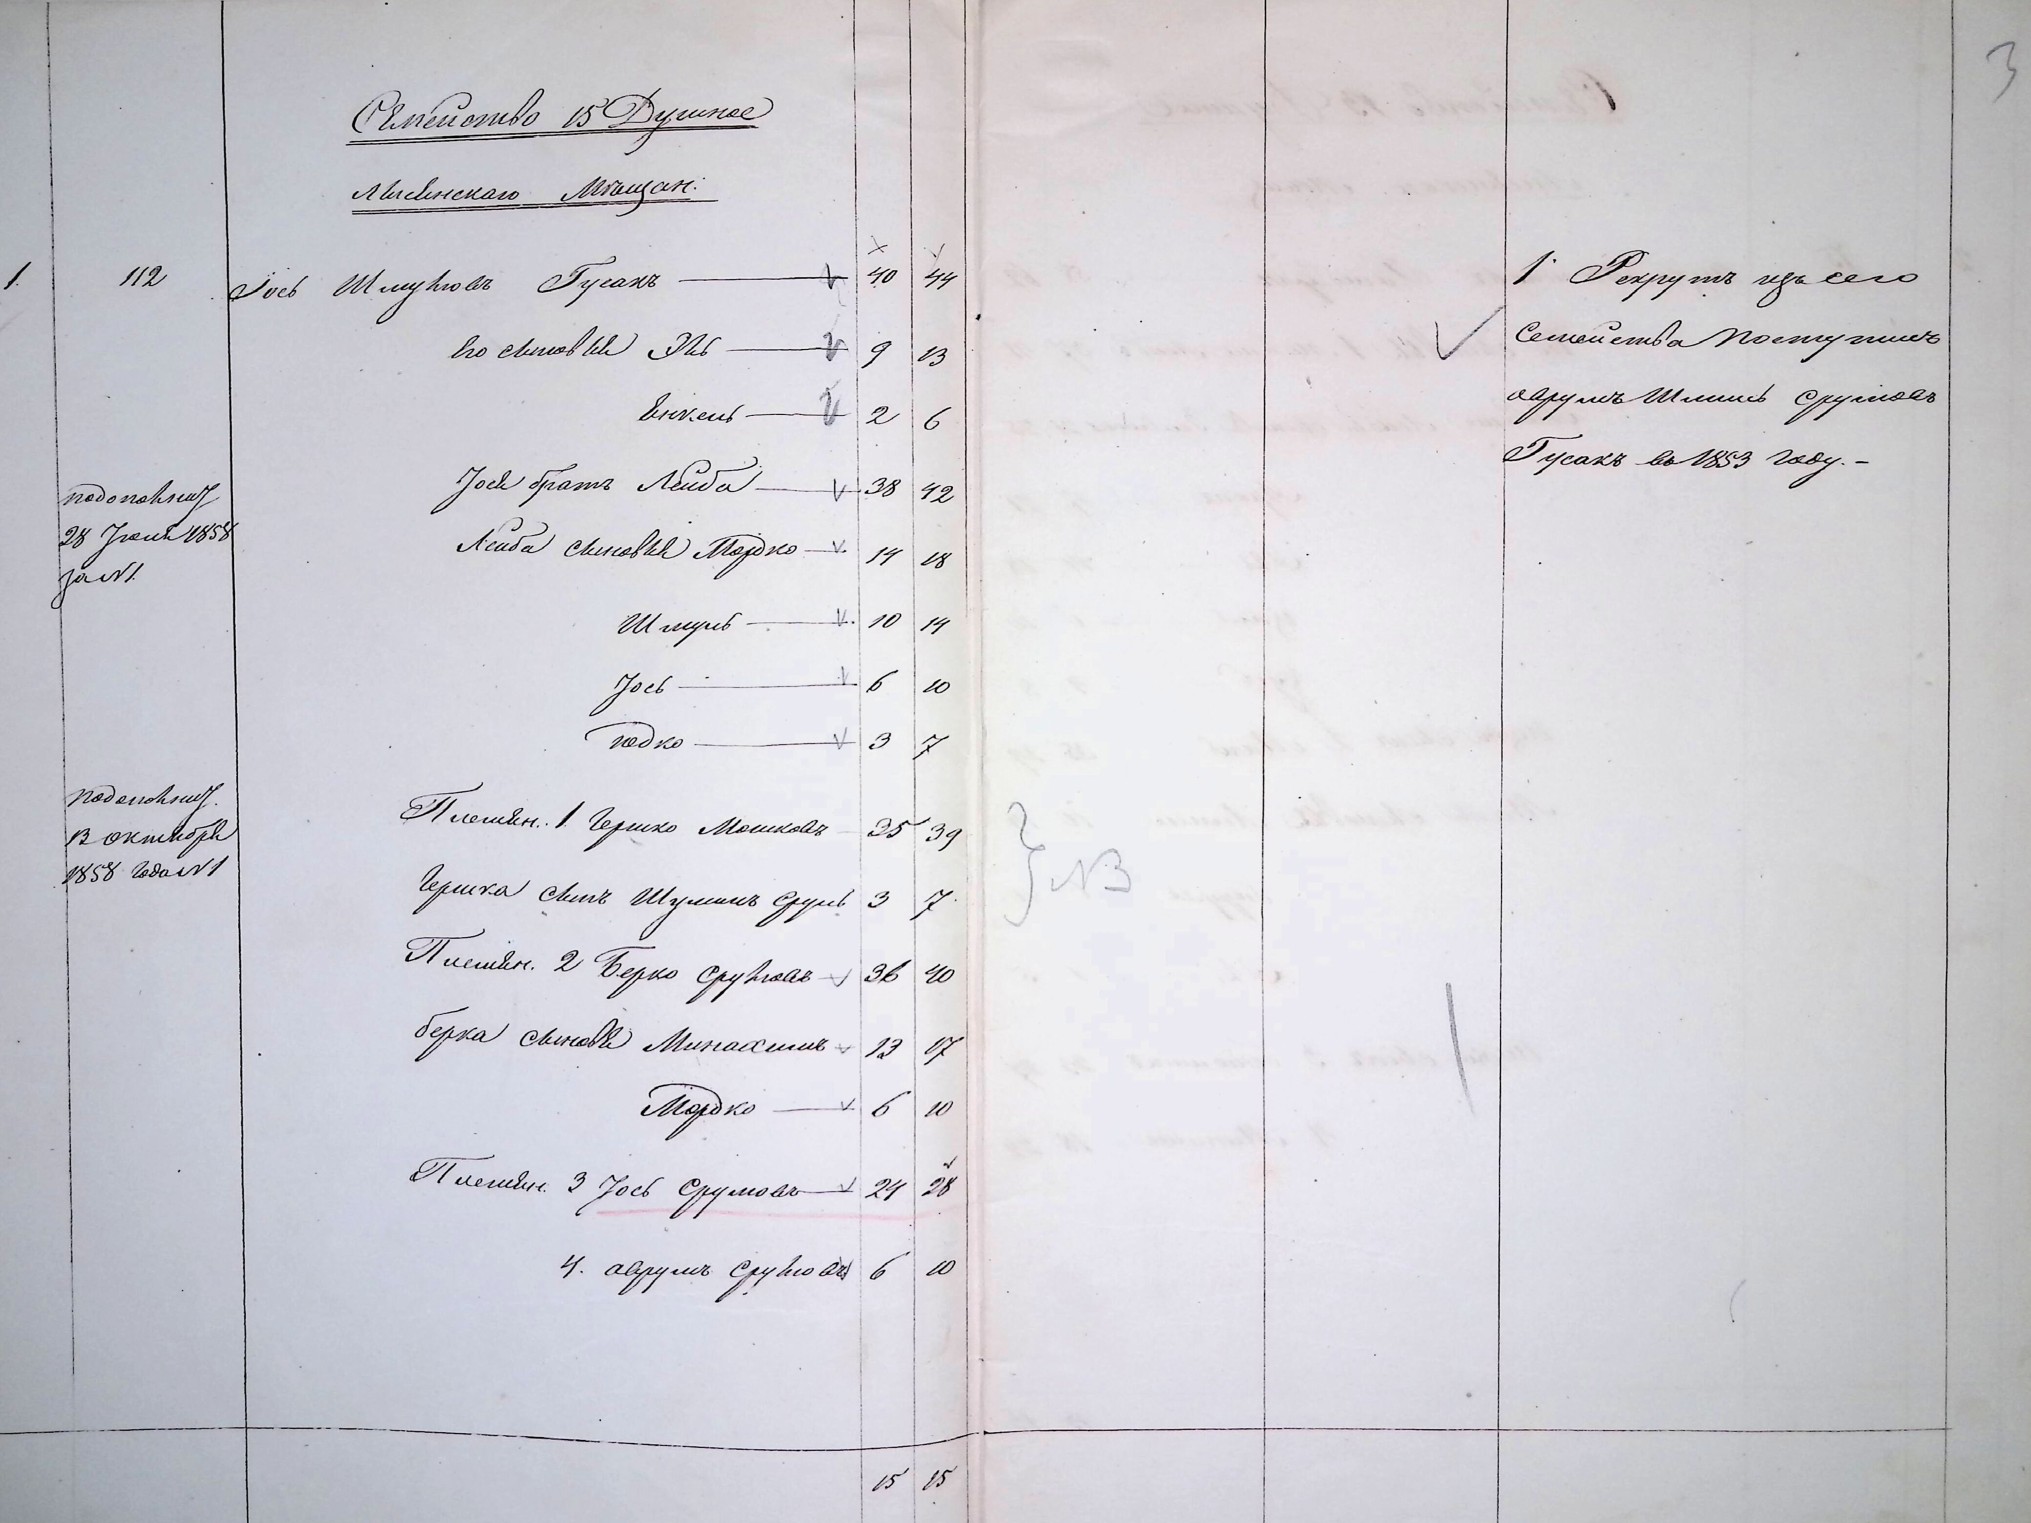 3
Семейство 15 Душное
Лисянскаго Мѣщан:
1. 112 Іось Шмулювъ Гусакъ 40 44
его сыновья Эль 9 13
Янкель 2 6
Іося братъ Лейба 38 42
28 Іюля 1858
за №1.
Лейба сыновья Мордко 14 18
Шмуль 10 14
Іось 6 10
3 7
13 октября
1858 года №1
Племян. 1. Гершко Мошковъ 35 39
Гершка сынъ Шулимъ Сруль 3 7
Племян. 2 Берко Срулювъ 36 40
Берка сыновья Минахимъ 13 17
Мордко 6 10
Племян. 3 Іось Срумовъ 24 28
4. Аврумъ Срулювъ 6 10
15 15
NB
1 Рекрутъ изъ сего
Семейства Поступилъ
Аврумъ Шлиль Срулювъ
Гусакъ въ 1853 году.-